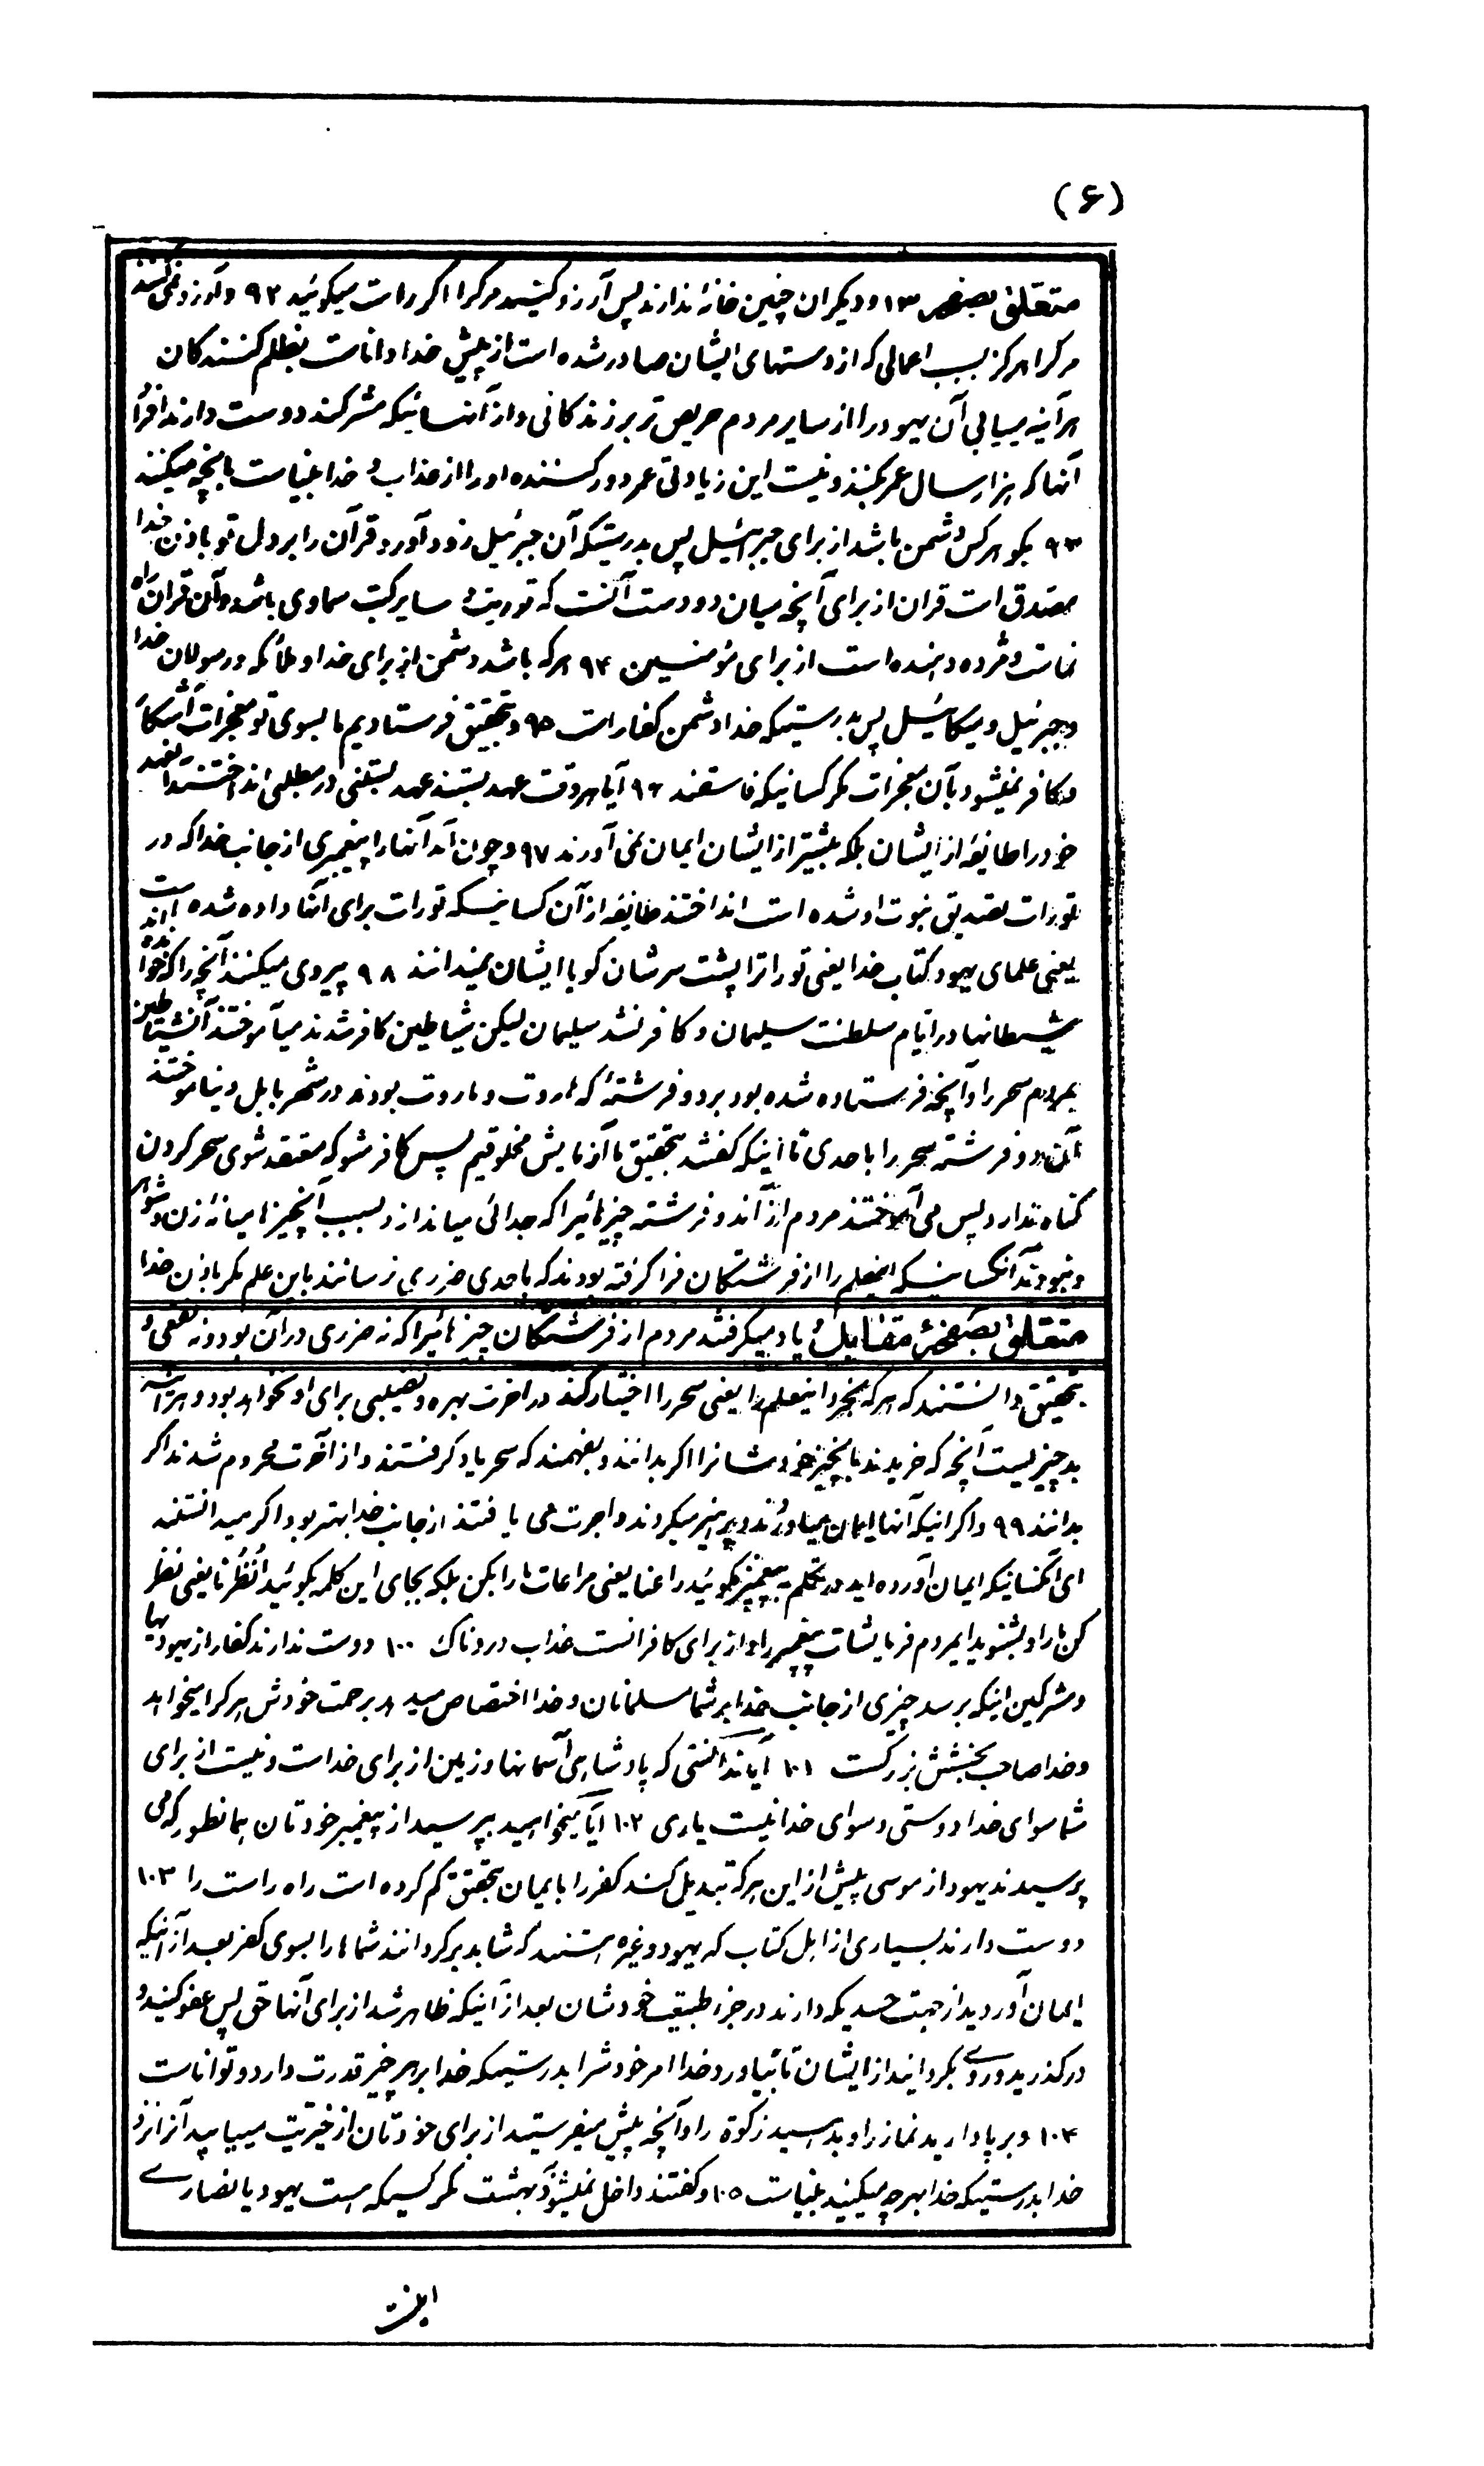 (۶)
متعلق بصفحه ۱۳ و دیکران چنین خانهٔ ندارند پس آرزو کنید مرکرا اکر راست میکوئید ۹۲ و آرزو نمیکنند
مرکرا هرکز بسبب اعمالی که از دستهای ایشان صادر شده است از پیش خدا داناست بظلم کنندکان
هرآینه مییابی آن یهود را از سایر مردم حریص تر بر زندکانی و از آنسانیکه مشرکند دوست دارند افراد
آنها که هزار سال عمر بکنند و نیست این زیادتی عمر دور کننده او را از عذاب و خدا بیناست بانچه میکنند
۹۳ بکو هرکس دشمن باشد از برای جبرئیل پس بدرستیکه آن جبرئیل زود آورد قرآن را بر دل تو باذن خدا
مصدق است قران از برای آنچه میان دو دست آنست که توریة و سایر کتب سماوی باشد و آن قران راه
نماست و مژده دهنده است از برای مؤمنین ۹۴ هرکه باشد دشمن از برای خدا و ملائکه و رسولان خدا
و جبرئیل و میکائیل پس بدرستیکه خدا دشمن کفار است ۹۵ و بتحقیق فرستادیم ما بسوی تو معجزات آشکار
و کافر نمیشود بآن معجزات مکر کسانیکه فاسقند ۹۶ آیا هر وقت عهد بستند عهد بستنی در مطلبی انداختند عهد
خود را طائفهٔ از ایشان بلکه بیشتر از ایشان ایمان نمی آورند ۹۷ و چون آمد آنها را پیغمبری از جانب خدا که در
تورات تصدیق نبوت او شده است انداختند طائفهٔ از آن کسانیکه تورات برای آنها داده شده است
یعنی علمای یهود کتاب خدا یعنی تورات را پشت سرشان کویا ایشان نمیدانند ۹۸ پیروی میکنند آنچه را که خوانده اند
شیطانها در ایام سلطنت سلیمان و کافر نشد سلیمان لیکن شیاطین کافر شدند میآموختند آنشیاطین
بمردم سحر را و آنچه فرستاده شده بود بر دو فرشتهٔ که هاروت و ماروت بودند در شهر بابل و نیاموختند
آن دو فرشته سحر را باحدی تا اینکه کفتند بتحقیق ما آزمایش مخلوقیم پس کافر مشو که معتقد شوی سحر کردن
کناه ندارد پس می آموختند مردم از آندو فرشته چیزهائیرا که جدائی میاندازد بسبب آنچیزها میانهٔ زن و شوهر
و نبودند آنکسانیکه اینعلم را از فرشتکان فرا کرفته بودند که باحدی ضرری رسانند باین علم مکر باذن خدا
متعلق بصفحهٔ مقابل و یاد میکرفتند مردم از فرشتکان چیزهائیرا که نه ضرری در آن بود و نه نفعی و
بتحقیق دانستند که هرکه بخرد اینعلم را یعنی سحر را اختیار کند در اخرت بهره و نصیبی برای او نخواهد بود و هرآینه
بد چیزیست آنچه که خریدند بانچیز خودشانرا اکر بدانند و بفهمند که سحر یاد کرفتند و از آخرت محروم شدند اکر
بدانند ۹۹ و اکر اینکه آنها ایمان میاوردند و پرهیز میکردند و اجرت می یافتند از جانب خدا بهتر بود اکر میدانستند
ای آنکسانیکه ایمان آورده اید در تکلم بپیغمبر نکوئید راعنا یعنی مراعات مارا بکن بلکه بجای این کلمه بکوئید اُنظُرنا یعنی نظر
کن مارا و بشنوید ایمردم فرمایشات پیغمبر را و از برای کافرانست عذاب دردناک ۱۰۰ دوست ندارند کفار از یهودیها
و مشرکین اینکه برسد چیزی از جانب خدا بر شما مسلمانان و خدا اختصاص میدهد برحمت خودش هرکرا میخواهد
و خدا صاحب بخشش بزرکست ۱۰۱ آیا ندانستی که پادشاهی آسمانها و زمین از برای خداست و نیست از برای
شما سوای خدا دوستی و سوای خدا نیست یاری ۱۰۲ آیا میخواهید بپرسید از پیغمبر خودتان همانطور که می
پرسیدند یهود از موسی پیش از این هرکه تبدیل کند کفر را بایمان بتحقیق کم کرده است راه راست را ۱۰۳
دوست دارند بسیاری از اهل کتاب که یهود و غیره هستند که شاید برکردانند شماها را بسوی کفر بعد از آنیکه
ایمان آوردید از جهت حسدیکه دارند در جزء طبیعت خودشان بعد از آنیکه ظاهر شد از برای آنها حق پس عفو کنید و
درکذرید و روی بکردانید از ایشان تا بیاورد خدا امر خودشرا بدرستیکه خدا بر هر چیز قدرت دارد و تواناست
۱۰۴ و بر پا دارید نماز را و بدهید زکوة را و آنچه پیش میفرستید از برای خودتان از خیریت مییابید آنرا نزد
خدا بدرستیکه خدا بهرچه میکنید بیناست ۱۰۵ و کفتند داخل نمیشود بهشت مکر کسیکه هست یهود یا نصاری
اینست